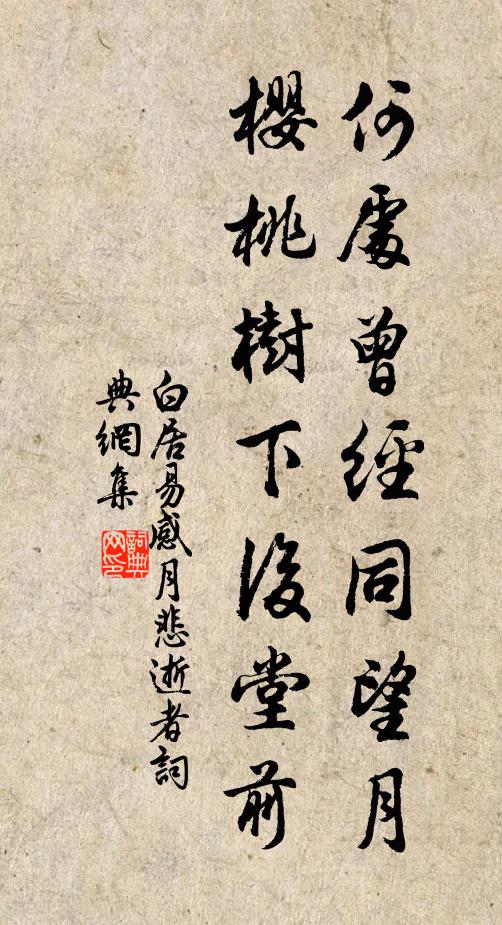 何處曾經同望月
櫻桃樹下後堂前
白居易感月悲逝者詞
典網集
詞典
网印